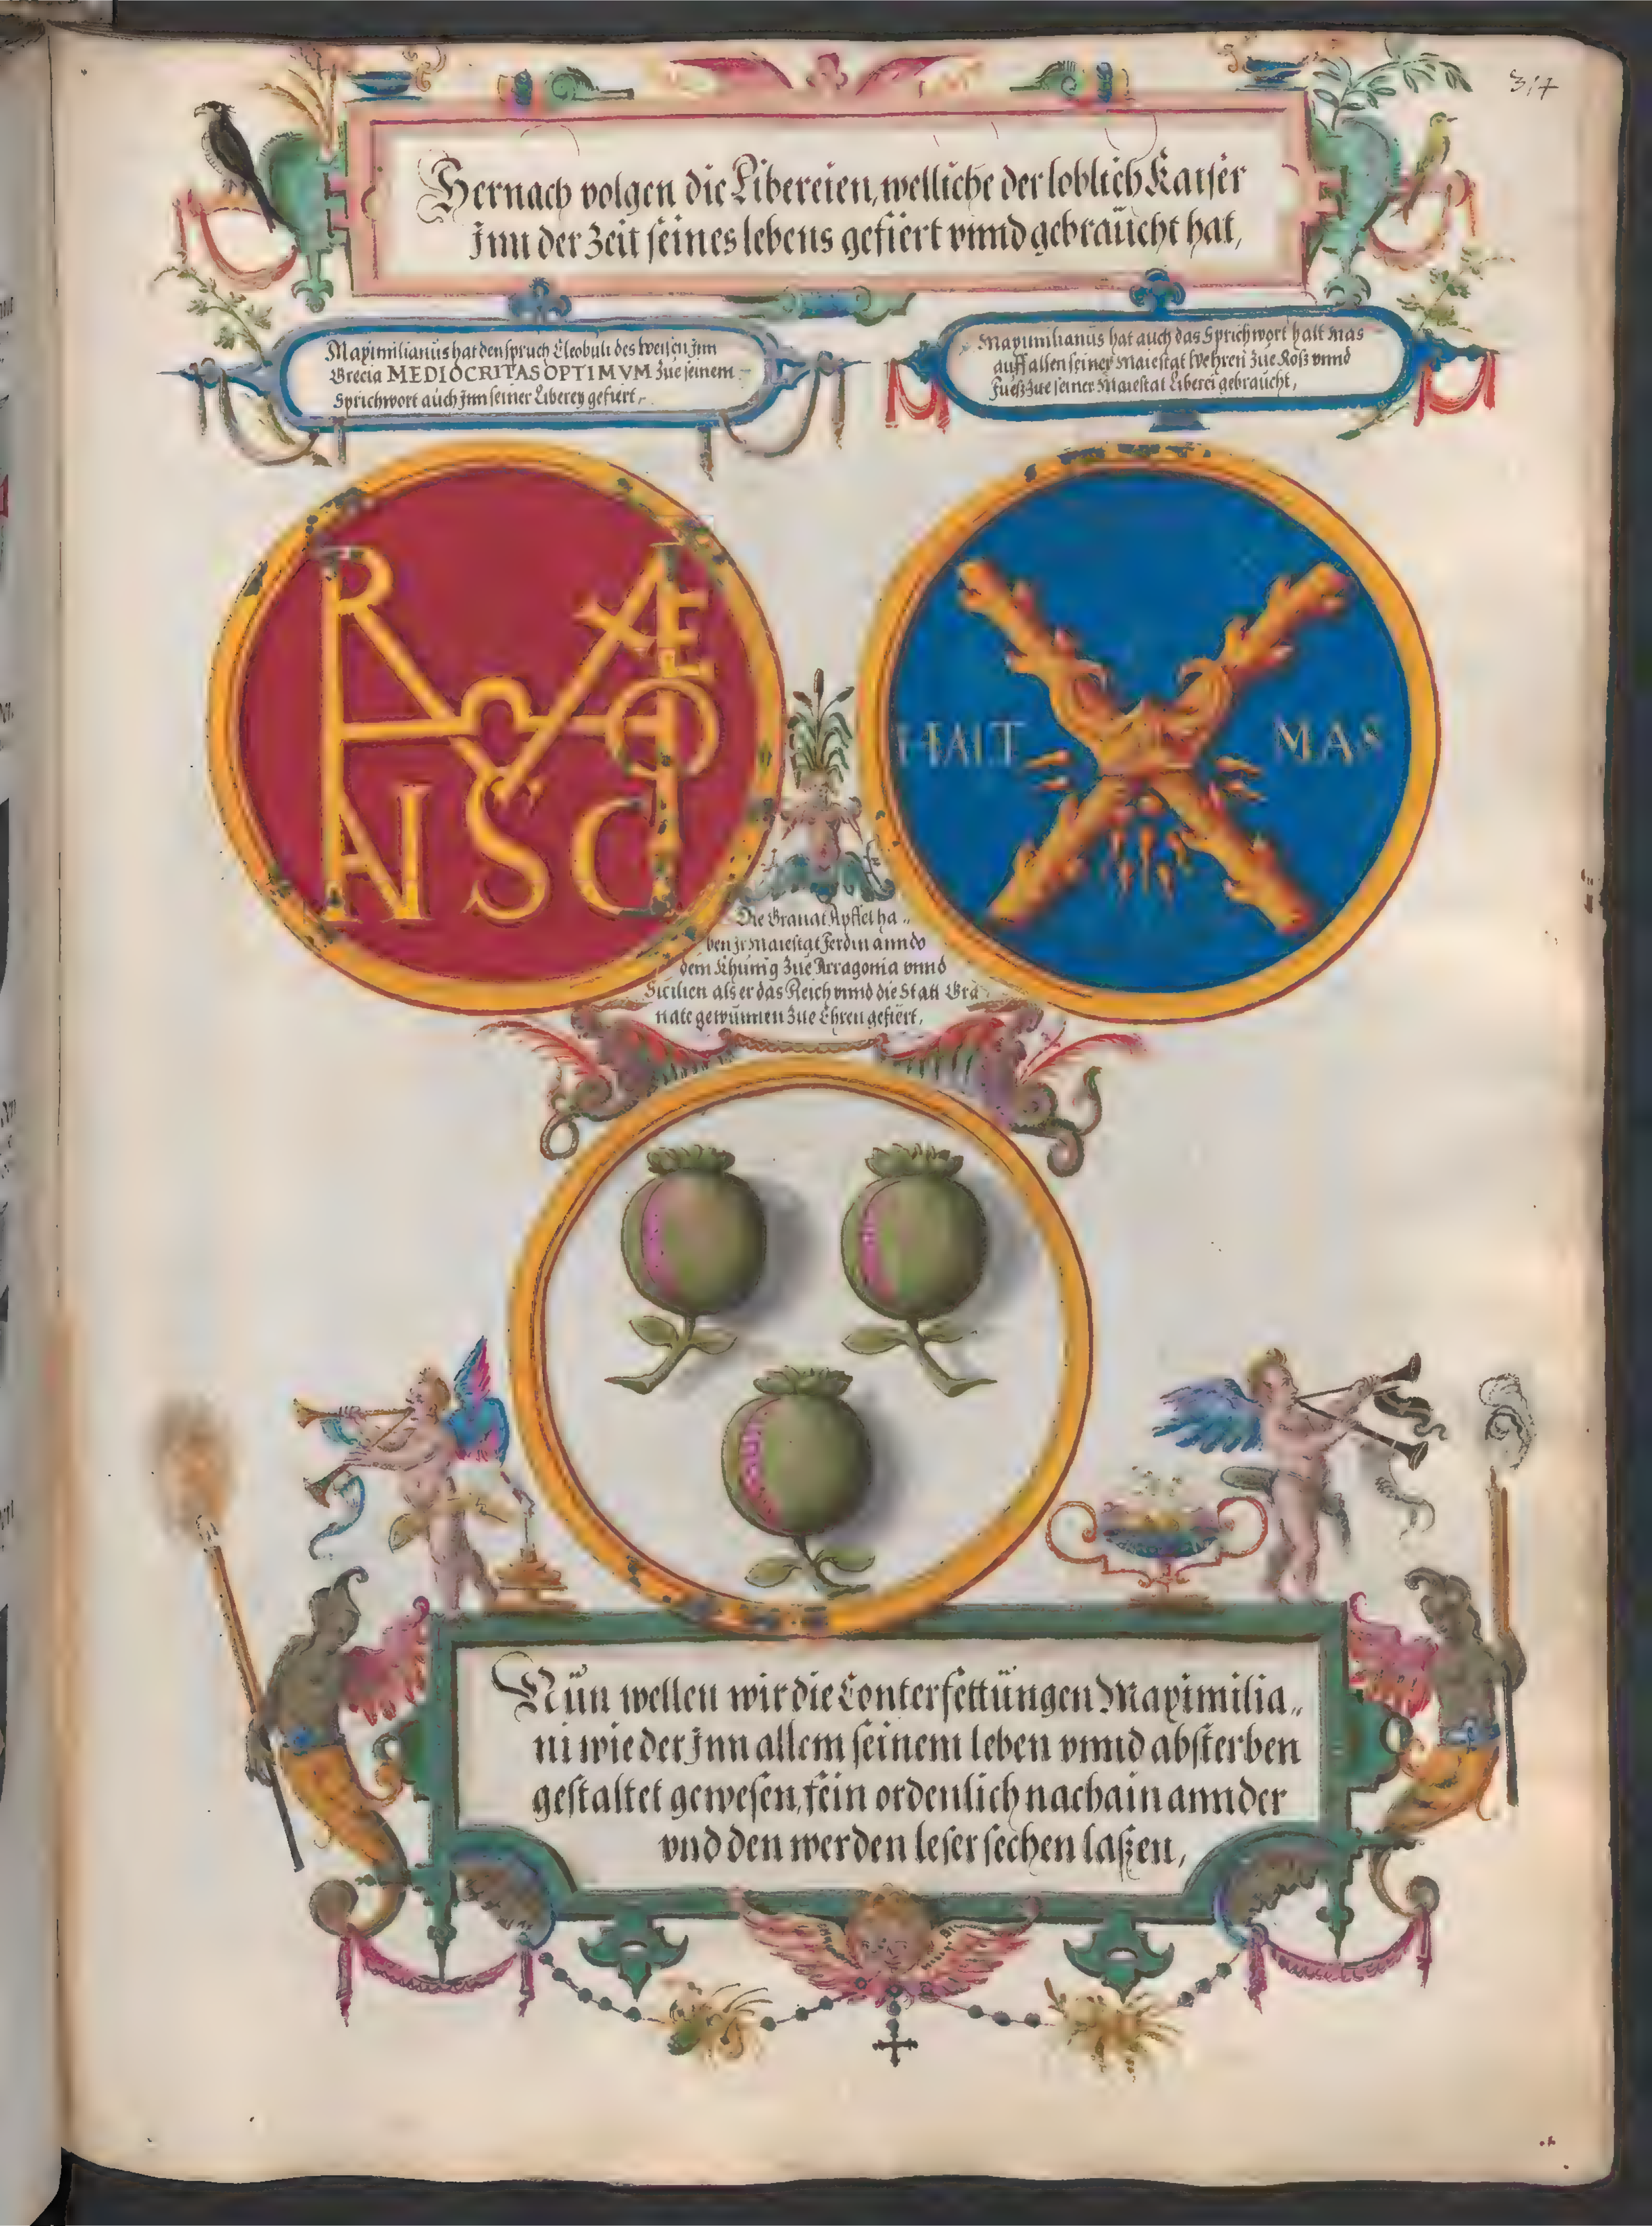 317
Hernach volgen die Libereien, welliche der loblich Kaiser
Jnn der Zeit seines lebens gefiert vnnd gebraücht hat,
Maximilianüs hat den spruch Cleobuli des weisen Jnn
Grecia MEDIOCRITAS OPTIMVM Züe seinem
Sprichwort auch Jnn seiner Liberey gefiert,
Maximilianüs hat auch das Sprichwort halt Mas
auff allen seiner Maiestat Wehren Züe Roß vnnd
Füeß Züe seiner Maiestat Liberei gebraücht,
HALT MAS
Die Granat Apffel ha„
ben Jr Maiestat Ferdinanndo
dem Khünig Züe Arragonia vnnd
Sicilien als er das Reich vnnd die Statt Gra
nate gewünnen Züe Ehren gefiert,
Nün wellen wir die Conterfettüngen Maximilia„
ni wie der Jnn allem seinem leben vnnd absterben
gestaltet gewesen, fein ordenlich nachainannder
vnd den werden leser sechen laßen,